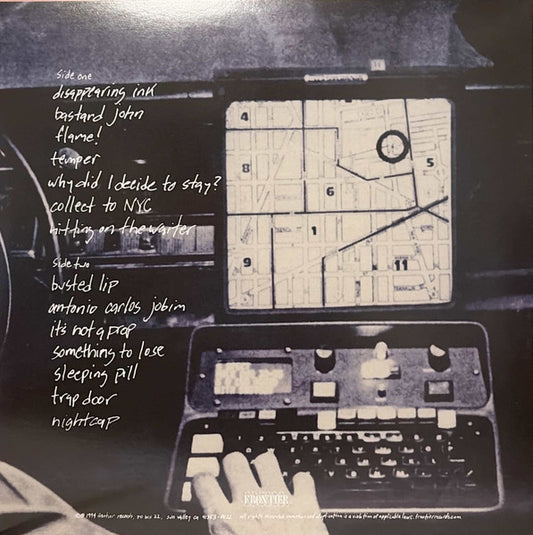 side one
disappearing ink
bastard john
flame!
temper
why did I decide to stay?
collect to NYC
hitting on the waiter
side two
busted lip
antonio carlos jobim
it's not a prop
something to lose
sleeping pill
trap door
nightcap
4
8
6
5
1
9
11
FRANKLIN
FRONTIER
©℗ 1994 frontier records, po box 22, sun valley ca all rights reserved. unauthorized duplication is a violation of applicable laws. frontierrecords.com